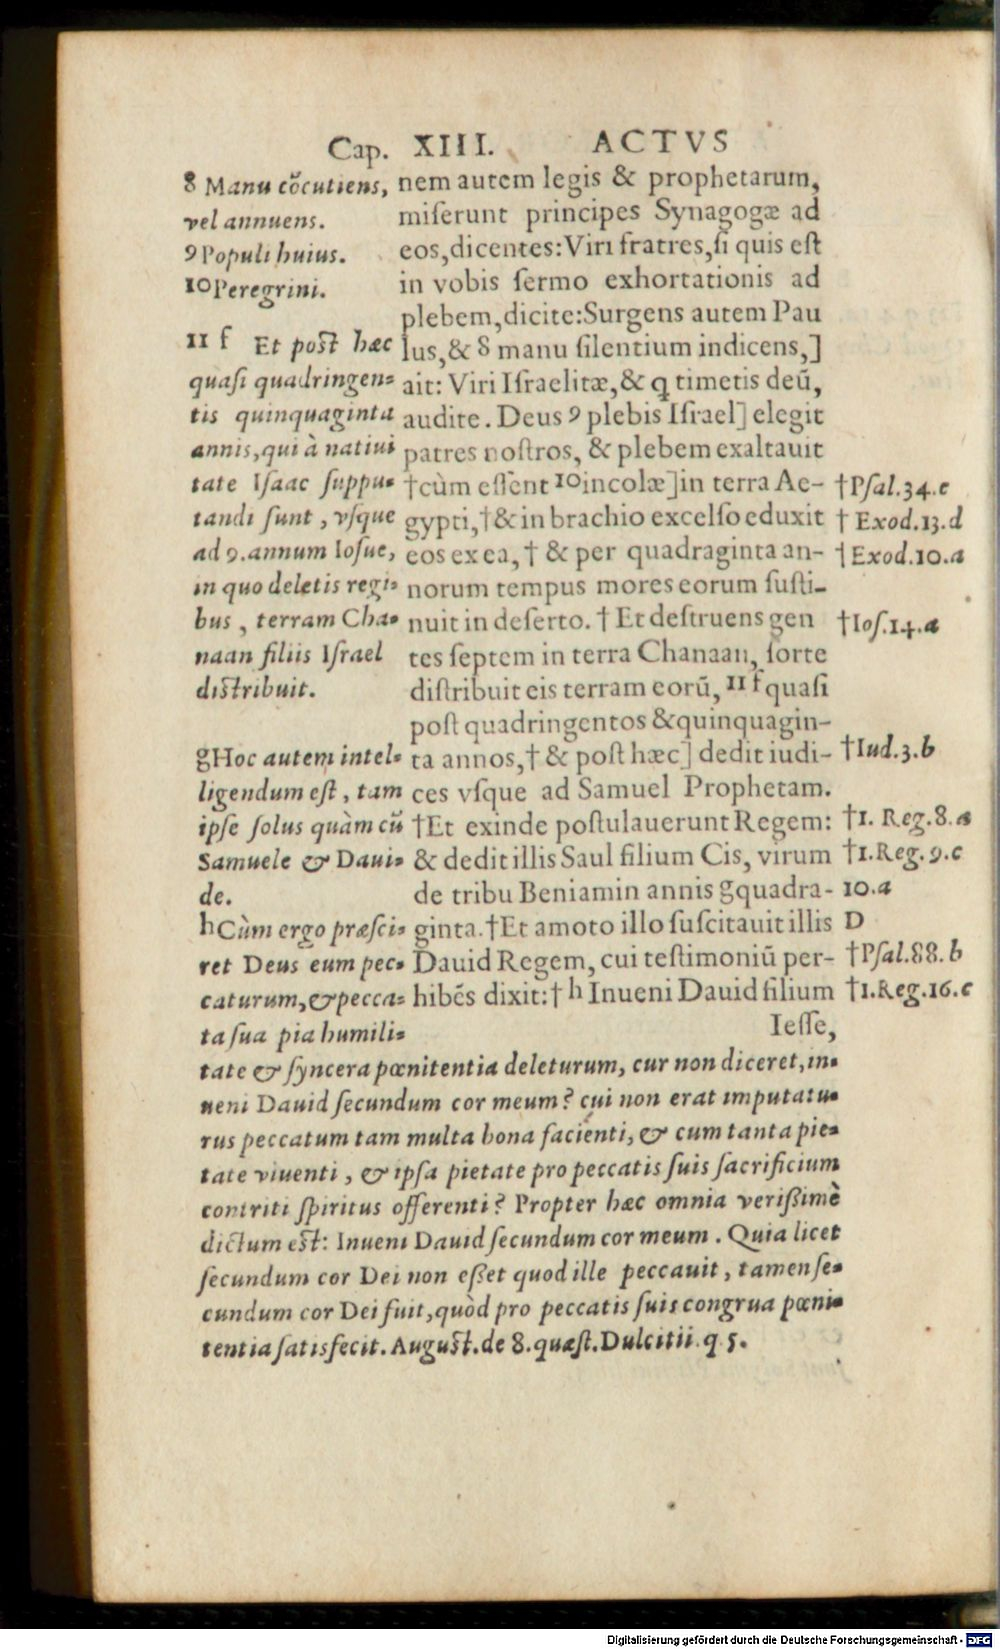 Cap. XIII. ACTVS
8 Manu cõcutiens,
vel annuens.
9 Populi huius.
10 Peregrini.
11 f Et post hæc
quasi quadringen-
tis quinquaginta
annis, qui à natiui
tate Isaac suppu-
tandi sunt, vsque
ad 9. annum Iosue,
in quo deletis regi-
bus, terram Cha-
naan filiis Israel
distribuit.
g Hoc autem intel-
ligendum est, tam
ipse solus quàm cũ
Samuele & Daui-
de.
h Cùm ergo præsci-
ret Deus eum pec-
caturum, & pecca-
ta sua pia humili-
tate & syncera pœnitentia deleturum, cur non diceret, in-
ueni Dauid secundum cor meum? cui non erat imputatu-
rus peccatum tam multa bona facienti, & cum tanta pie-
tate viuenti, & ipsa pietate pro peccatis suis sacrificium
contriti spiritus offerenti? Propter hæc omnia verißimè
dictum est: Inueni Dauid secundum cor meum. Quia licet
secundum cor Dei non eßet quod ille peccauit, tamen se-
cundum cor Dei fuit, quòd pro peccatis suis congrua pœni-
tentia satisfecit. August. de 8. quæst. Dulcitii. q. 5.
nem autem legis & prophetarum,
miserunt principes Synagogæ ad
eos, dicentes: Viri fratres, si quis est
in vobis sermo exhortationis ad
plebem, dicite: Surgens autem Pau
lus, & 8 manu silentium indicens,]
ait: Viri Israelitæ, & q timetis deũ,
audite. Deus 9 plebis Israel] elegit
patres nostros, & plebem exaltauit
†cùm essent 10 incolæ] in terra Ae-
gypti, †& in brachio excelso eduxit
eos ex ea, † & per quadraginta an-
norum tempus mores eorum susti-
nuit in deserto. † Et destruens gen
tes septem in terra Chanaan, sorte
distribuit eis terram eorũ, 11 f quasi
post quadringentos & quinquagin-
ta annos, † & post hæc] dedit iudi-
ces vsque ad Samuel Prophetam.
†Et exinde postulauerunt Regem:
& dedit illis Saul filium Cis, virum
de tribu Beniamin annis g quadra-
ginta. †Et amoto illo suscitauit illis
Dauid Regem, cui testimoniũ per-
hibẽs dixit: † h Inueni Dauid filium
Iesse,
†Psal.34.c
† Exod.13.d
†Exod.10.a
†Ios.14.a
†Iud.3.b
†1. Reg.8.a
†1.Reg.9.c
10.a
D
†Psal.88.b
†1.Reg.16.c
Digitalisierung gefördert durch die Deutsche Forschungsgemeinschaft - DFG